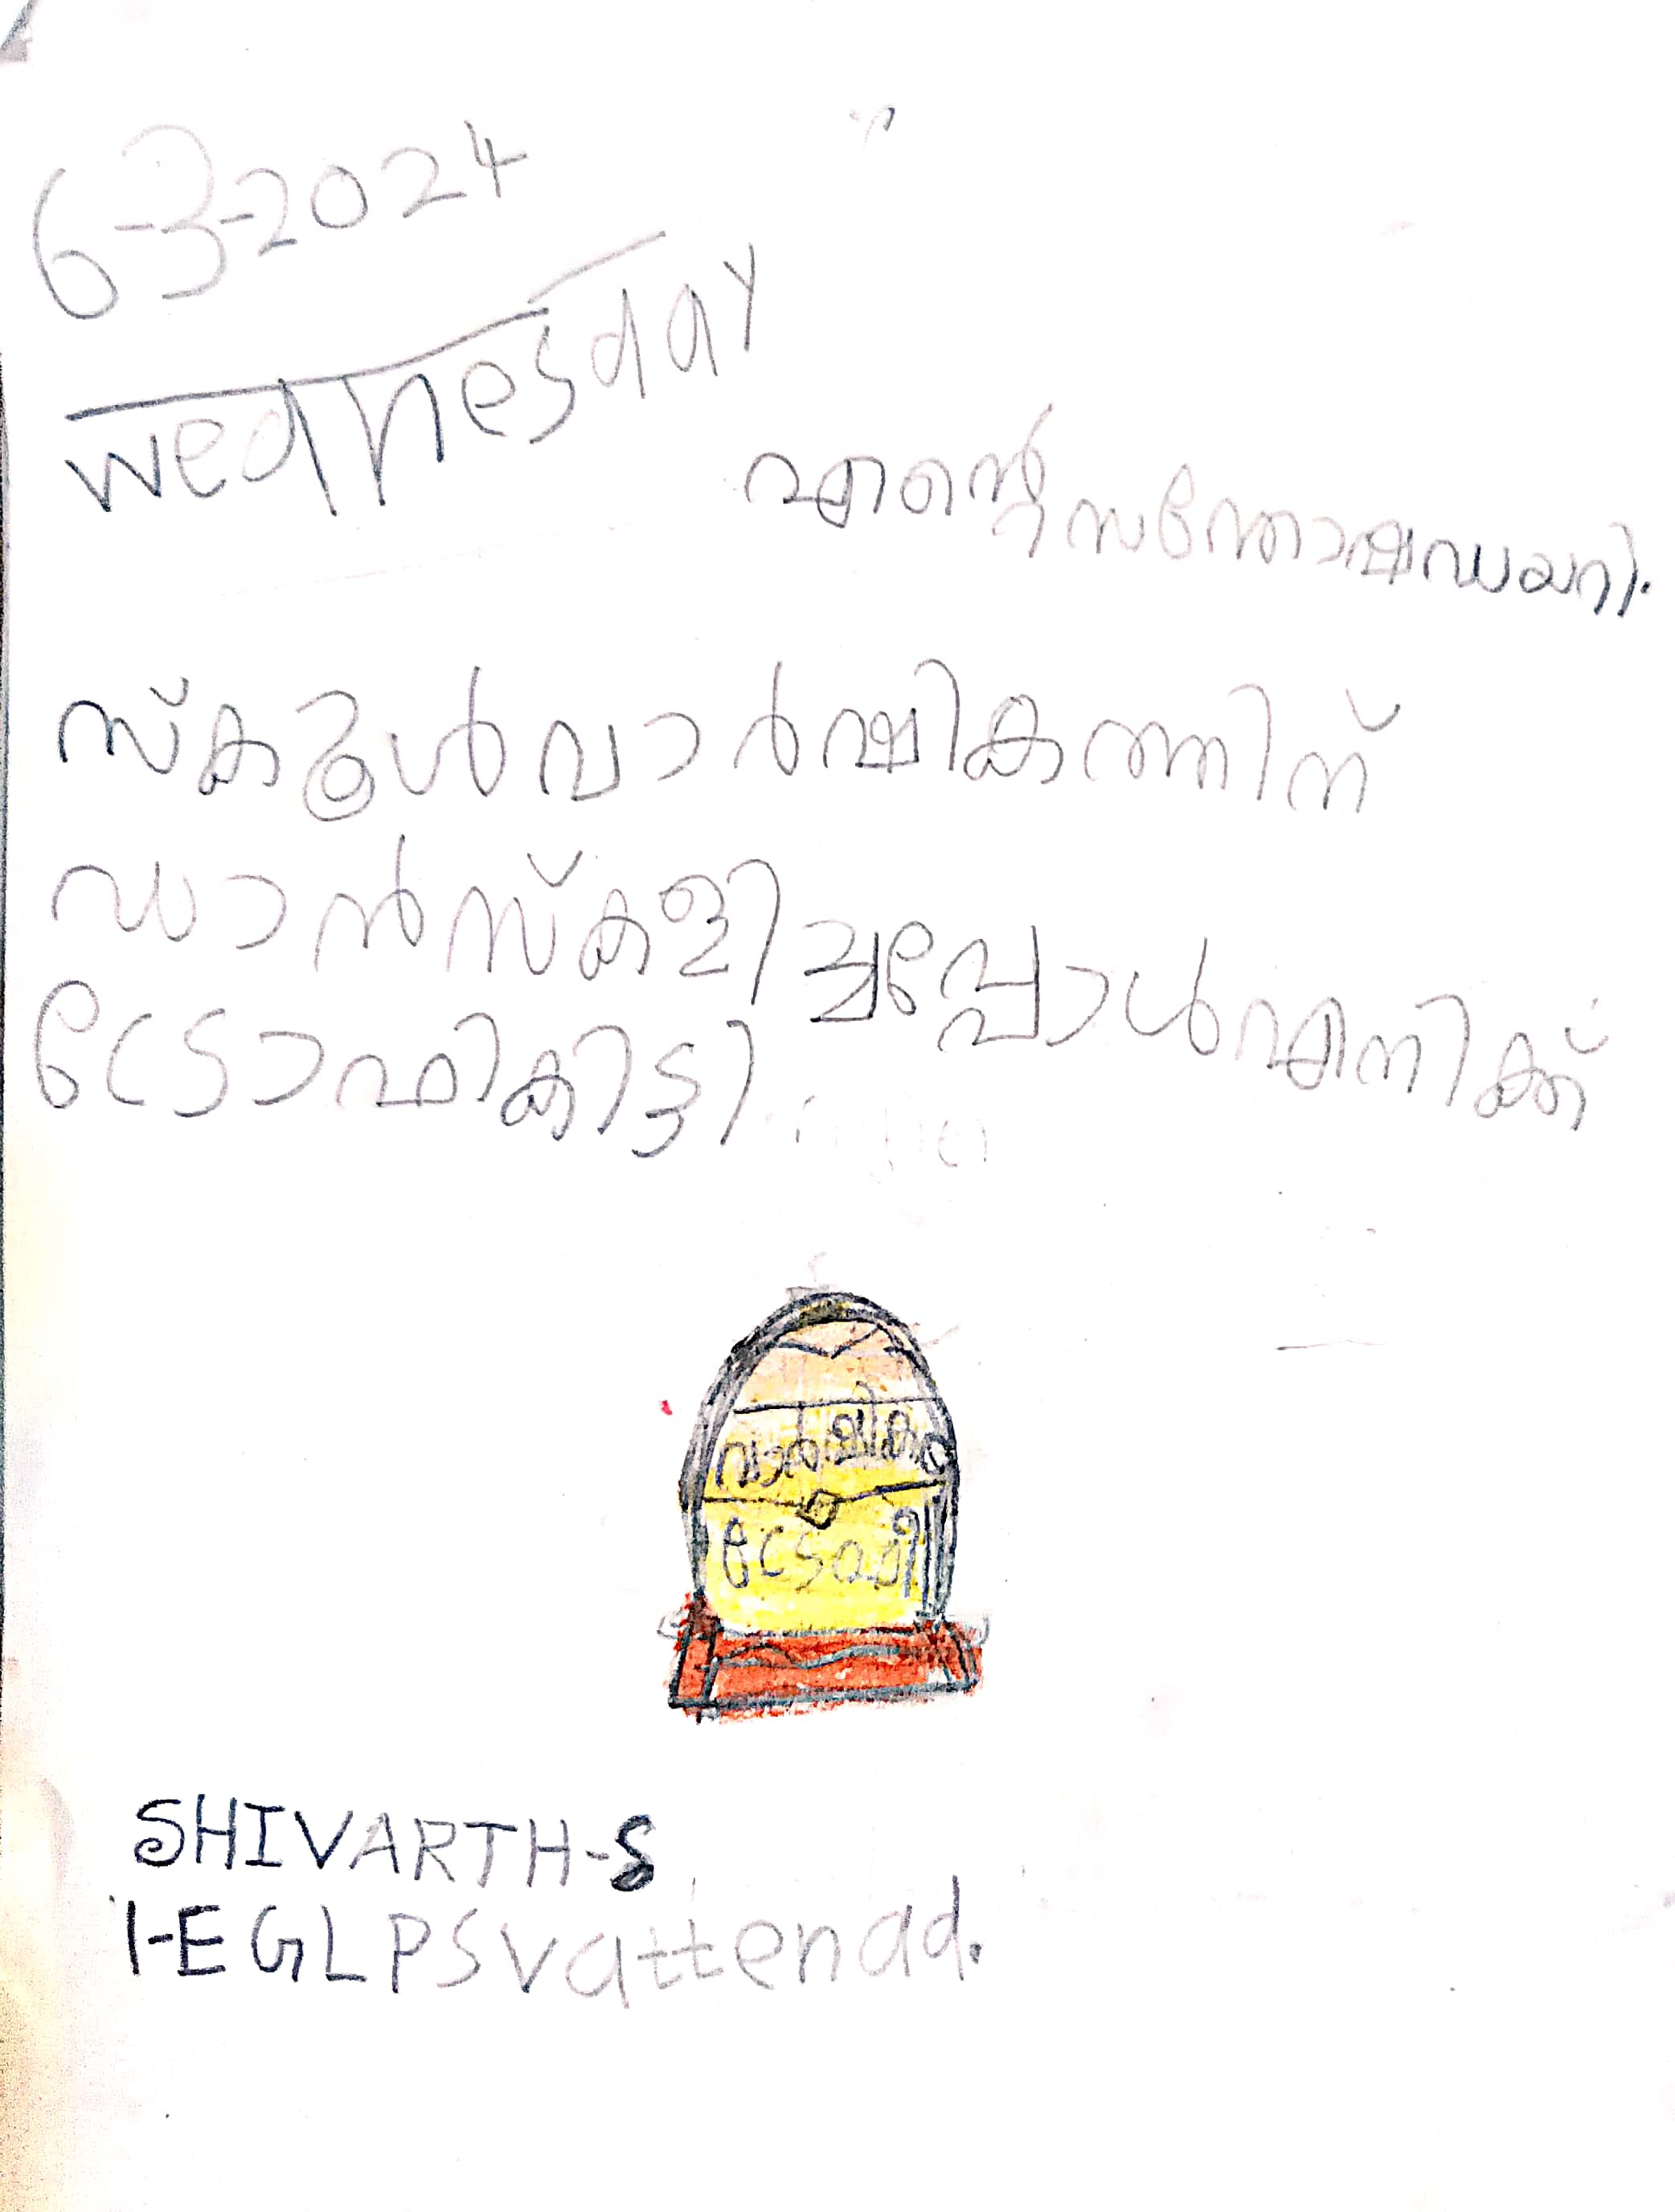 6-3-2024
Wednesday
എന്റെ സന്തോഷ ഡയറി.
സ്കൂൾ വാർഷികത്തിന്
ഡാൻസ് കളിച്ചപ്പോൾ എനിക്ക്
ട്രോഫി കിട്ടി
വാർഷികം
SHIVARTH-S
1-E GLPS vattenad.